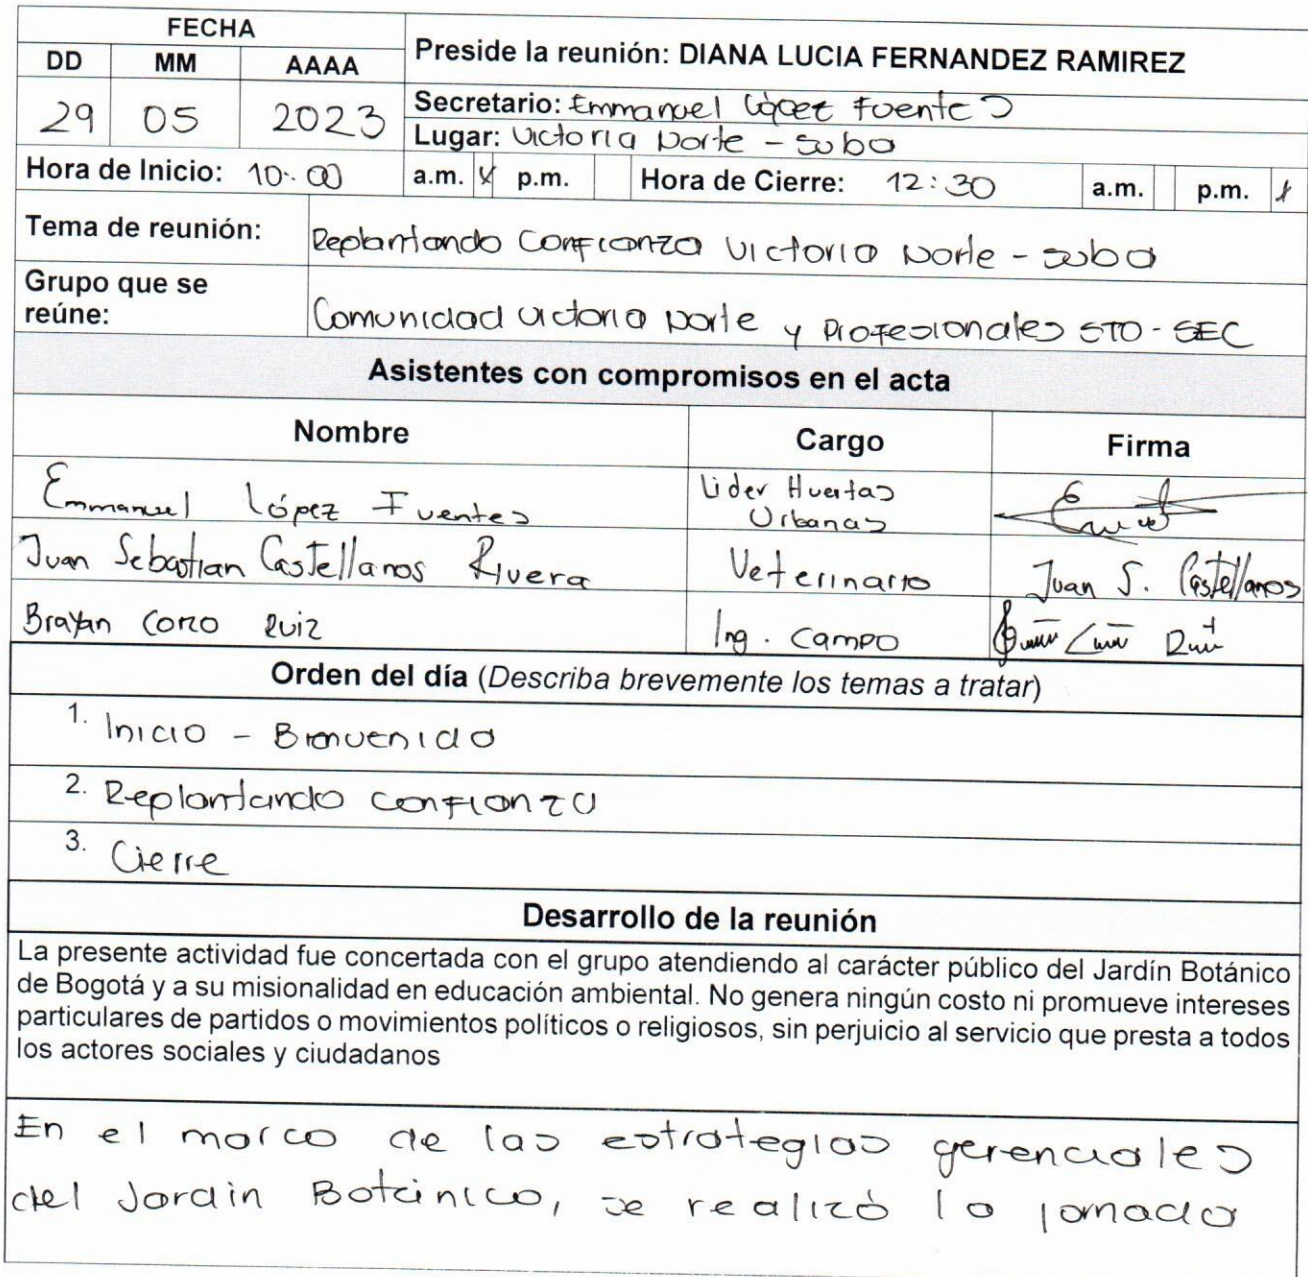 FECHA
DD MM AAAA
Preside la reunión: DIANA LUCIA FERNANDEZ RAMIREZ
29 05 2023
Secretario: Emmanuel López Fuentes
Lugar: Victoria Norte - Suba
Hora de Inicio: 10:00 a.m. X p.m. Hora de Cierre: 12:30 a.m. p.m. X
Tema de reunión: Replantando Confianza Victoria Norte - Suba
Grupo que se
reúne: Comunidad Victoria Norte y Profesionales STO - SEC
Asistentes con compromisos en el acta
Nombre Cargo Firma
Emmanuel López Fuentes Lider Huertas
Urbanas
Juan Sebastian Castellanos Rivera Veterinario Juan S. Castellanos
Brayan Corzo Ruiz Ing. Campo
Orden del día (Describa brevemente los temas a tratar)
1. Inicio - Bienvenida
2. Replantando confianza
3. Cierre
Desarrollo de la reunión
La presente actividad fue concertada con el grupo atendiendo al carácter público del Jardín Botánico
de Bogotá y a su misionalidad en educación ambiental. No genera ningún costo ni promueve intereses
particulares de partidos o movimientos políticos o religiosos, sin perjuicio al servicio que presta a todos
los actores sociales y ciudadanos
En el marco de las estrategias gerenciales
del Jardin Botánico, se realizó la jornada